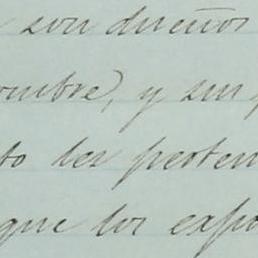 son dueños
ombre), y sin
to les perten
que los expo